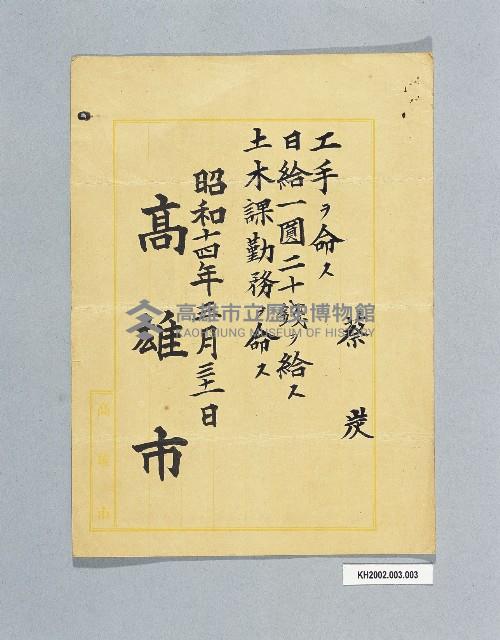 蔡炭
工手ヲ命ス
日給一圓二十錢ヲ給ス
土木課勤務ヲ命ス
昭和十四年三月三十一日
高雄市
高雄市
高雄市立歷史博物館
KAOHSIUNG MUSEUM OF HISTORY
KH2002.003.003